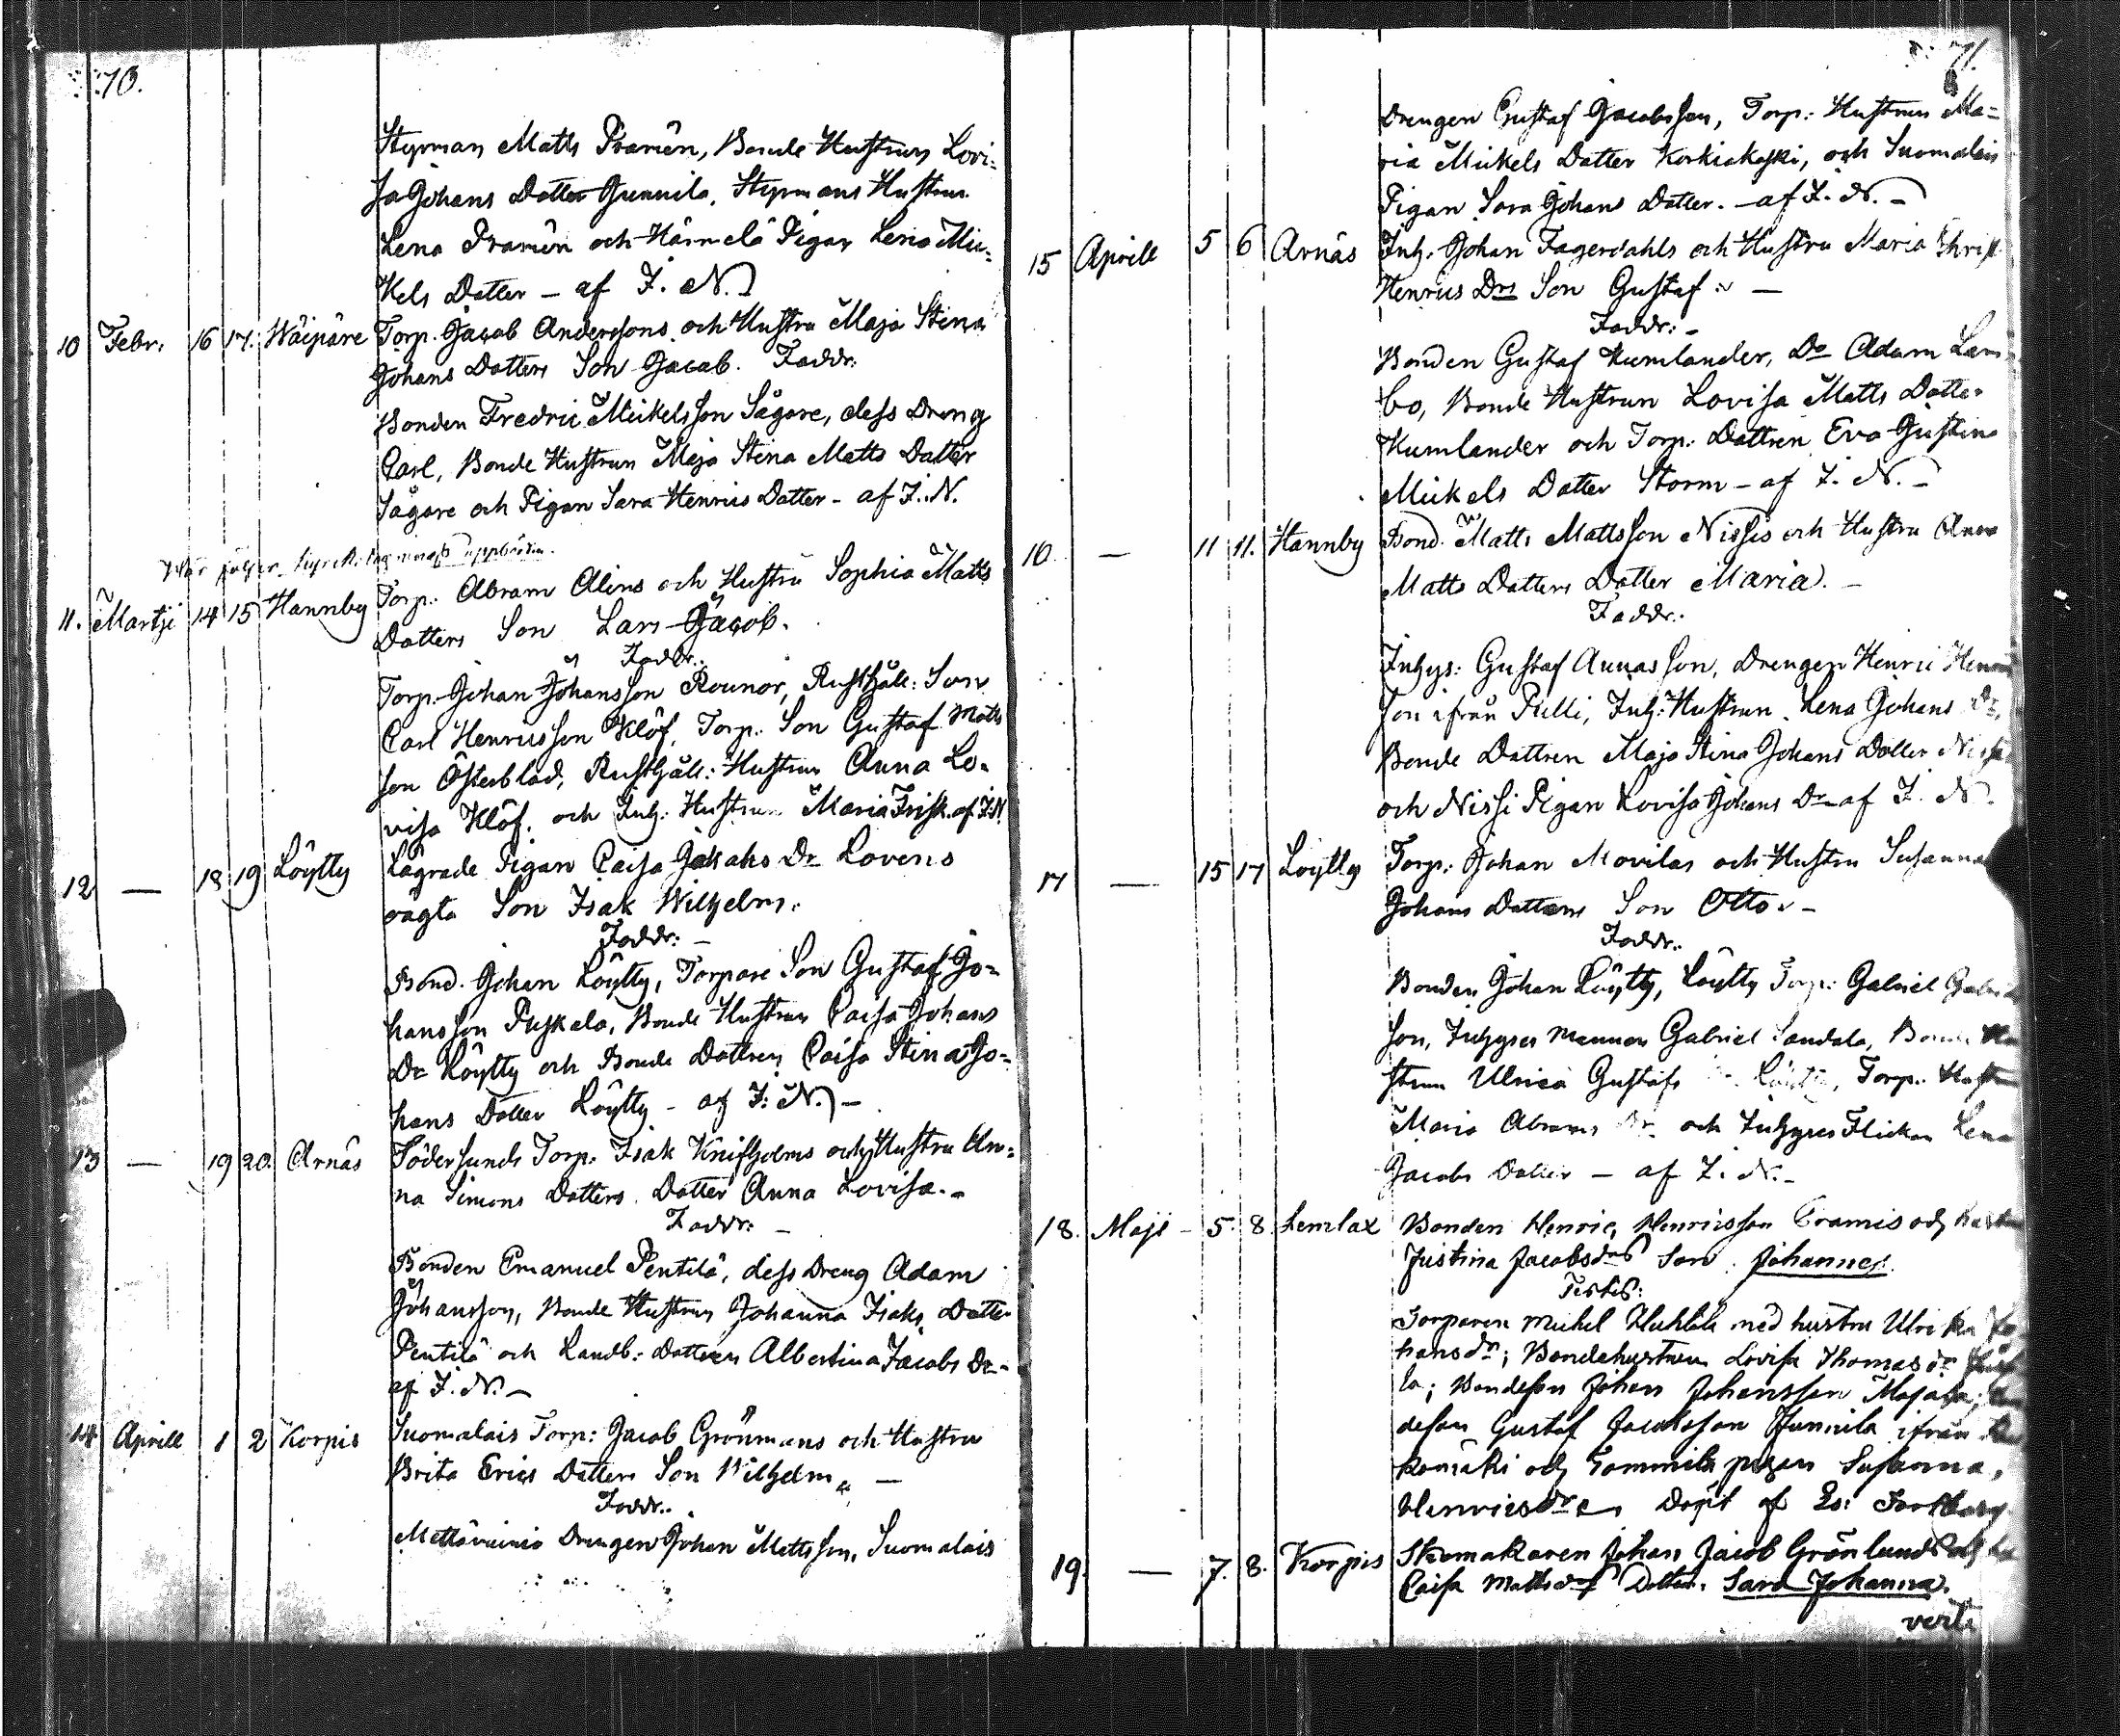 70.
Styrman Matts Pramên, Bonde Hustrun Lovi-
sa Johans Datter Gunnila, Styrmans Hustrun
Lena Pramên och Härmelä Pigan Lena Mic-
kels Datter – af J. N.
10 Febr. 16 17. Wäipäre Torp. Jacob Anderssons och Hustru Maja Stina
Johans Datters Son Jacob. Faddr:
Bonden Fredric Mickelsson Sågare, dess Dreng
Carl, Bonde Hustrun Maja Stina Matts Datter
Sågare och Pigan Sara Henrics Datter – af J. N.
11. Martji 14 15 Hannby Torp: Abram Alins och Hustru Sophia Matts
Datters Son Lars Jacob.
Faddr:
Torp. Johan Johansson Rounor, Rusthåll: Son
Carl Henricsson Klöf, Torp. Son Gustaf Matts
son Österblad, Rusthåll: Hustrun Anna Lo-
visa Klöf, och Inh. Hustrun Maria Frisk. af J. N.
12 — 18 19 Löytty Lägrade Pigan Caisa Dr Lovens
oägta Son Isak Wilhelm.
Faddr: –
Bond. Johan Löytty, Torpare Son Gustaf Jo-
hansson Puskala, Bonde Hustrun Caisa Johans
Dr Löytty och Bonde Dottren Caisa Stina Jo-
hans Datter Löytty – af J. N. –
13 — 19 20. Arnäs Södersunds Torp. Isak Knifholms och Hustru An-
na Simons Datters Datter Anna Lovisa. –
Faddr: –
Bonden Emanuel Pentilä, dess Dreng Adam
Johansson, Bonde Hustrun Johanna Isaks Datter
Pentilä och Landb: dottren Albertina Jacobs Dr –
af J. N. –
14 Aprill 1 2 Korpis Suomalais Torp: Jacob Grönmans och Hustru
Brita Erics Datters Son Wilhelm. —
Faddr.
Mattävainio Drengen Johan Mattsson, Suomalais
71.
Drengen Gustaf Jacobsson, Torp: Hustrun Ma-
ria Mickels Datter Korkiakoski, och Suomalais
Pigan Sara Johans Datter. – af J. N. –
15 Aprill 5 6 Arnäs Inh. Johan Fagerdahls och Hustru Maria Christ
Henrics Drs Son Gustaf. —
Faddr: –
Bonden Gustaf Kumlander, Do Adam Lam-
bo, Bonde Hustrun Lovisa Matts Datter
Kumlander och Torp: Dattren Eva Gustina
Mickels Datter Storm – af J. N. –
16 — 11 11. Hannby Bond. Matts Mattsson Nissis och Hustru Anna
Matts Datters Datter Maria. –
Faddr.
Inhys: Gustaf Annasson, Drengen Henric
son ifrån Pulli, Inh: Hustrun Lena Johans Dr,
Bonde Dattren Maja Stina Johans Datter
och Nissi Pigan Lovisa Johans Dr – af J. N.
17 — 15 17 Löytty Torp: Johan Movilas och Hustru Susanna
Johans Datters Son Otto. –
Faddr.
Bonden Johan Löytty, Löytty Torp: Gabriel
son, Inhyses Mannen Gabriel Sandala, Bonde
strun Ulrica Gustafs Löytty, Torp:
Maria Abrams Dr och Inhyses Flickan Lena
Jacobs Datter – af J. N. –
18. Maji – 5. 8. Lemlax Bonden Henric Henricsson Cramis och
Justina Jacobsdrs Son. Johannes.
Testes:
Torparen Michel med hustru Ulrika
hansdr; Bondehustrun Lovisa Thomasdr
la; Bondeson Johan Johansson Majala;
deson Gustaf Jacobsson Junnila ifrån
komäki och Tommila pigan Susanna,
Henricsdr. Döpt af
19. — 7. 8. Korpis Skomakaren Johan Jacob Grönlunds och
Caisa Mattsdrs Dotter. Sara Johanna.
verte